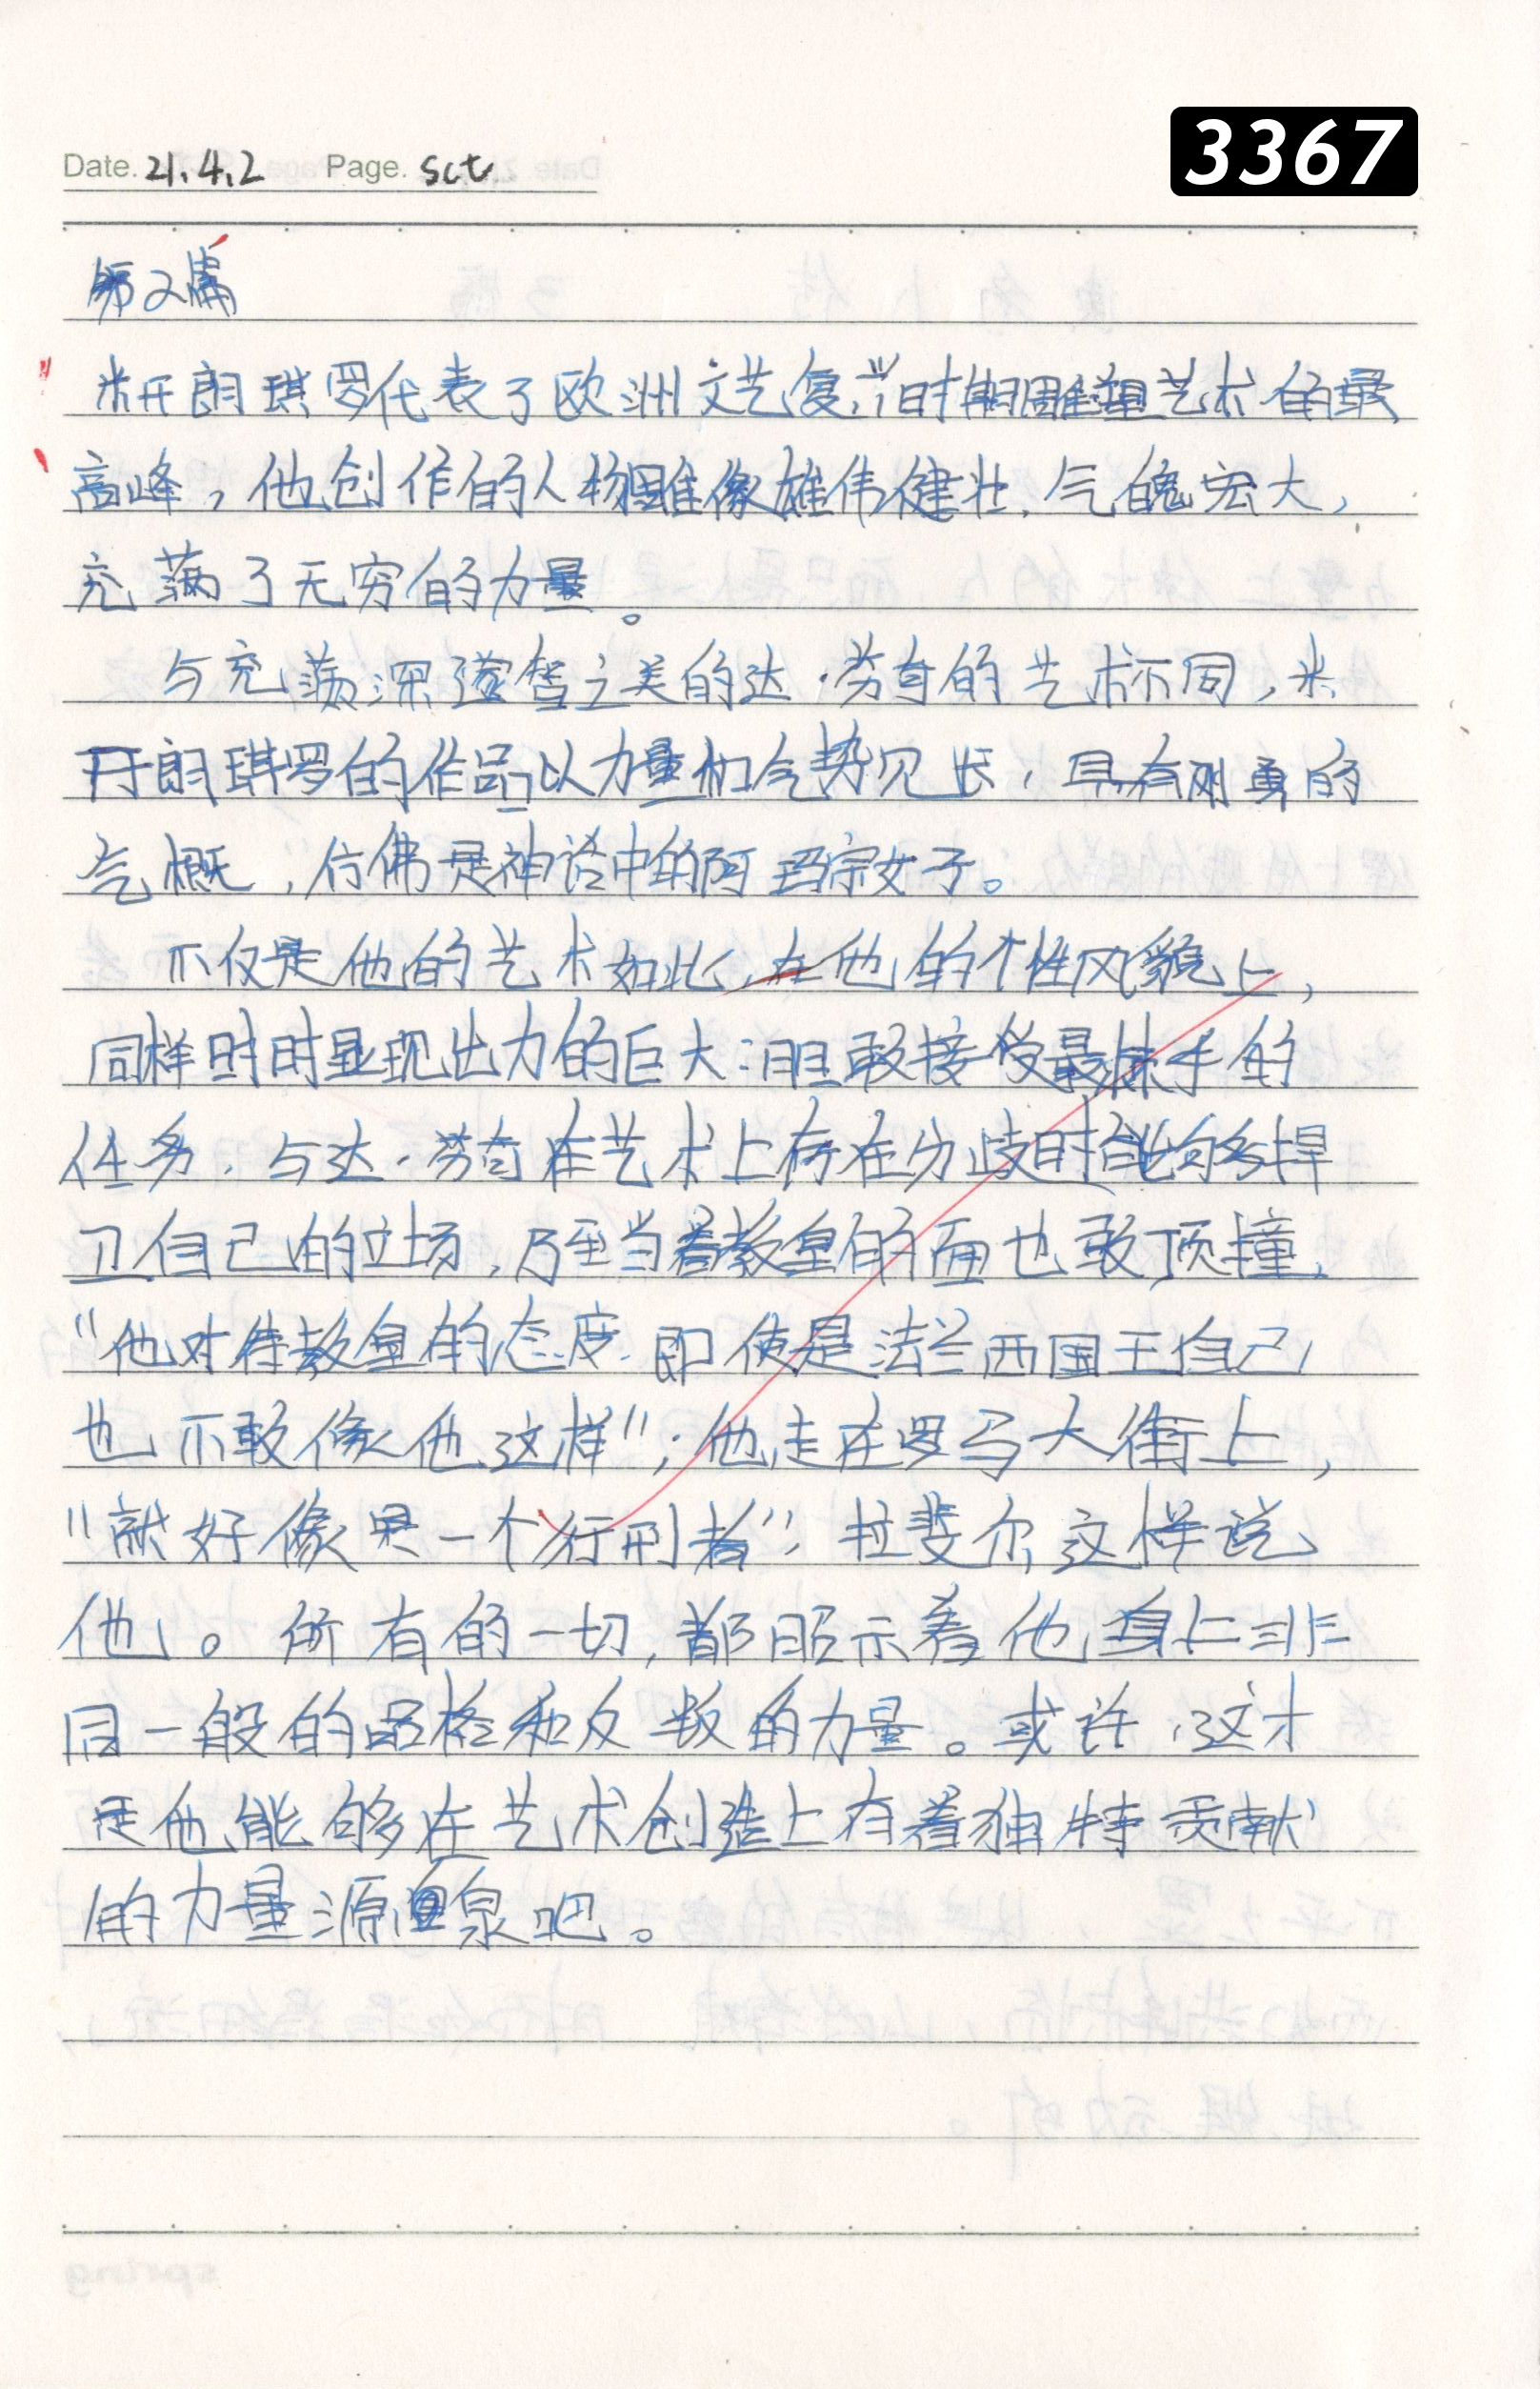 3367
Date. 21.4.2 Page. sct
第2篇
米开朗琪罗代表了欧洲文艺复兴时期雕塑艺术的最
高峰，他创作的人物雕像雄伟健壮，气魄宏大，
充满了无穷的力量。
与充荡深邃智之美的达·芬奇的艺术不同，米
开朗琪罗的作品以力量和气势见长，具有刚勇的
气概，仿佛是神话中的阿玛宗女子。
不仅是他的艺术如此，在他的个性风貌上，
同样时时显现出力的巨大：胆敢接受最棘手的
任务，与达·芬奇在艺术上存在分歧时能够捍
卫自己的立场，乃至当着教皇的面也敢顶撞，
“他对待教皇的态度，即使是法兰西国王自己，
也不敢像他这样”；他走在罗马大街上，
“就好像是一个行刑者”，拉斐尔这样说
他。所有的一切，都昭示着他身上非
同一般的品格和反叛的力量。或许，这才
是他能够在艺术创造上有着独特贡献
的力量源泉吧。
spring